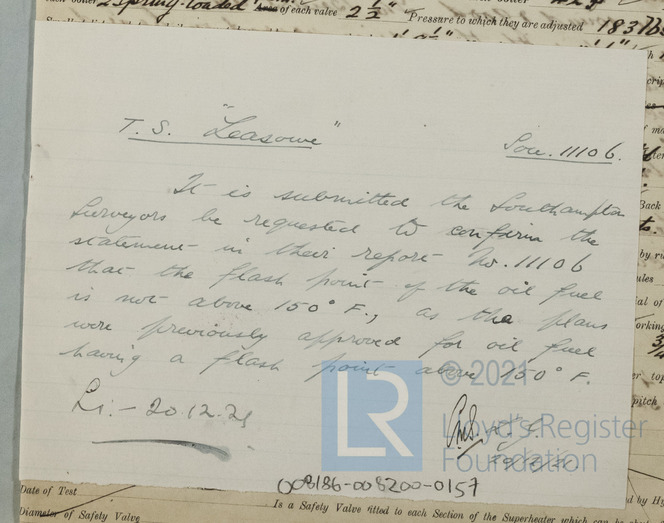 2 Spring-loaded
of each valve 2 1/2"
Pressure to which they are adjusted 183 lbs
T. S. "Leasowe"
Sou. 11106.
It is submitted the Southampton
Surveyors be requested to confirm the
statement in their report No. 11106
that the flash point of the oil fuel
is not above 150° F., as the plans
were previously approved for oil fuel
having a flash point above 150° F.
20.12.21
© 2021
LR
Lloyd's Register
Foundation
008186-008200-0157
Date of Test
Is a Safety Valve fitted to each Section of the Superheater which can be
Diameter of Safety Valve